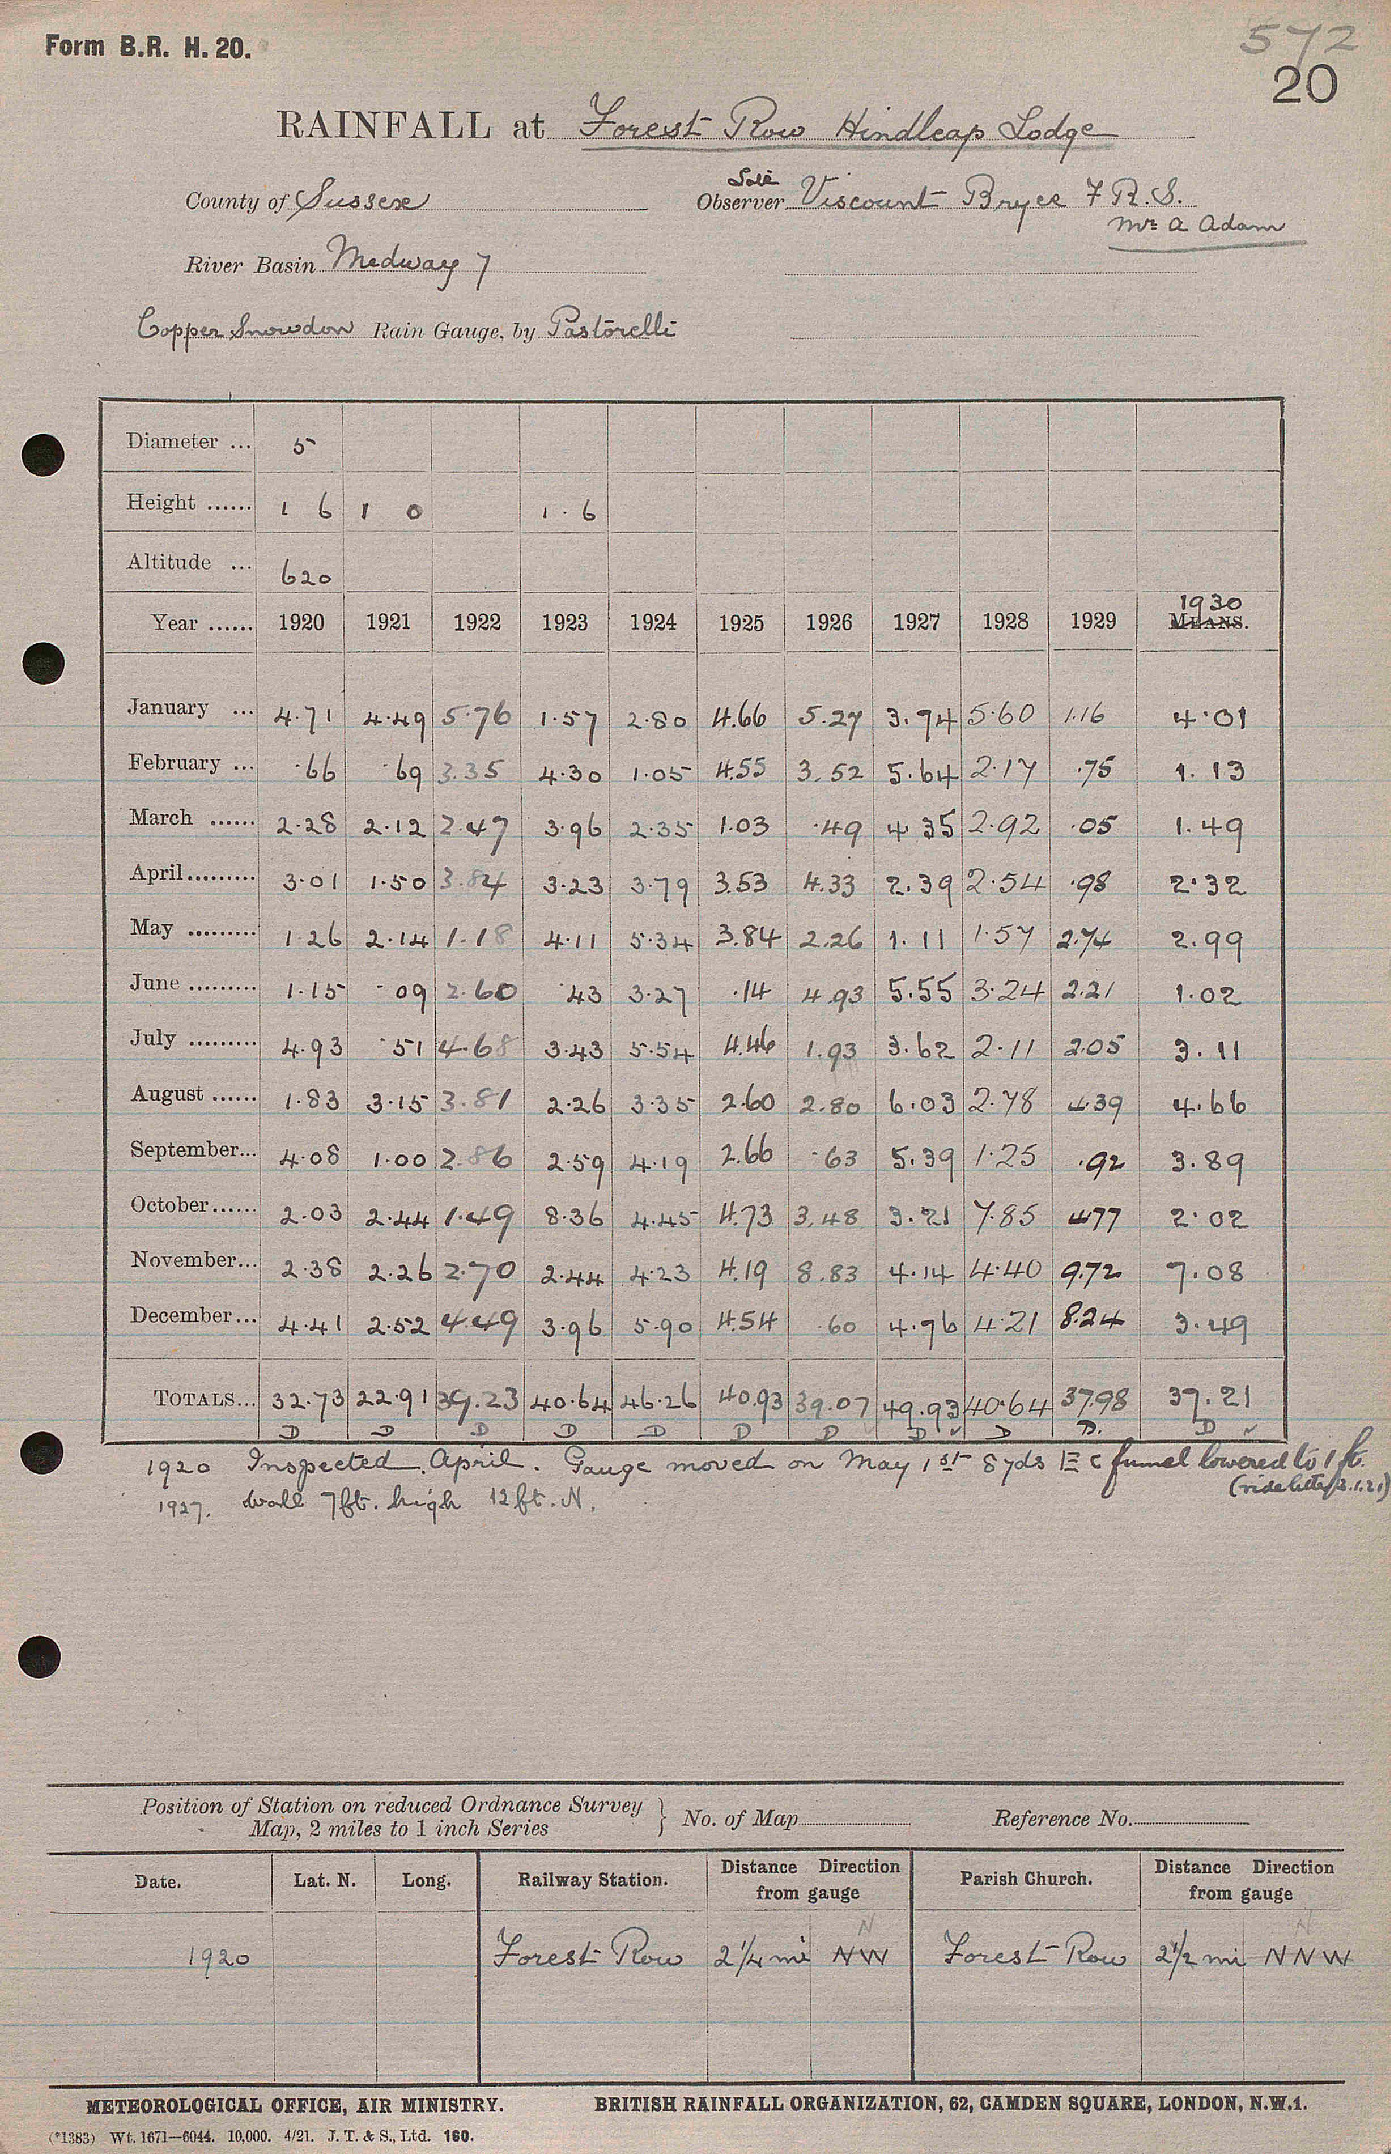 Form B.R. H. 20.
572
20
RAINFALL at Forest Row Hindleap Lodge
County of Sussex
Observer Viscount Bryce F.R.S.
Mr A Adam
River Basin Medway 7
Copper Snowdon Rain Gauge, by Pastorelli
Diameter ... 5
Height ...... 1 6 1 0 1 . 6
Altitude ... 620
Year ...... 1920 1921 1922 1923 1924 1925 1926 1927 1928 1929 1930 MEANS.
January ... 4.71 4.49 5.76 1.57 2.80 4.66 5.27 3.74 5.60 1.16 4.01
February ... .66 .69 3.35 4.30 1.05 4.55 3.52 5.64 2.17 .75 1.13
March ...... 2.28 2.12 2.47 3.96 2.35 1.03 .49 4.35 2.92 .05 1.49
April......... 3.01 1.50 3.84 3.23 3.79 3.53 4.33 2.39 2.54 .98 2.32
May ......... 1.26 2.14 1.18 4.11 5.34 3.84 2.26 1.11 1.57 2.74 2.99
June ......... 1.15 .09 2.60 .43 3.27 .14 4.93 5.55 3.24 2.21 1.02
July ......... 4.93 .51 4.68 3.43 5.54 4.46 1.93 3.62 2.11 2.05 3.11
August ...... 1.83 3.15 3.81 2.26 3.35 2.60 2.80 6.03 2.78 4.39 4.66
September... 4.08 1.00 2.86 2.59 4.19 2.66 .63 5.39 1.25 .92 3.89
October...... 2.03 2.44 1.49 8.36 4.45 4.73 3.48 3.21 7.85 4.77 2.02
November... 2.38 2.26 2.70 2.44 4.23 4.19 8.83 4.14 4.40 9.72 7.08
December... 4.41 2.52 4.49 3.96 5.90 4.54 .60 4.76 4.21 8.24 3.49
TOTALS... 32.73 22.91 39.23 40.64 46.26 40.93 39.07 49.93 40.64 37.98 37.21
D D D D D D D D D D. D
1920 Inspected April. Gauge moved on May 1st 8 yds E c funnel lowered to 1 ft.
(vide letter 2.1.21)
1927. wall 7ft. high 12 ft. N.
Position of Station on reduced Ordnance Survey
Map, 2 miles to 1 inch Series
No. of Map
Reference No.
Date. Lat. N. Long. Railway Station. Distance Direction from gauge Parish Church. Distance Direction from gauge
N N
1920 Forest Row 2 1/4 mi NW Forest Row 2 1/2 mi NNW
METEOROLOGICAL OFFICE, AIR MINISTRY. BRITISH RAINFALL ORGANIZATION, 62, CAMDEN SQUARE, LONDON, N.W.1.
(*1383) Wt. 1671—6044. 10,000. 4/21. J. T. & S., Ltd. 160.